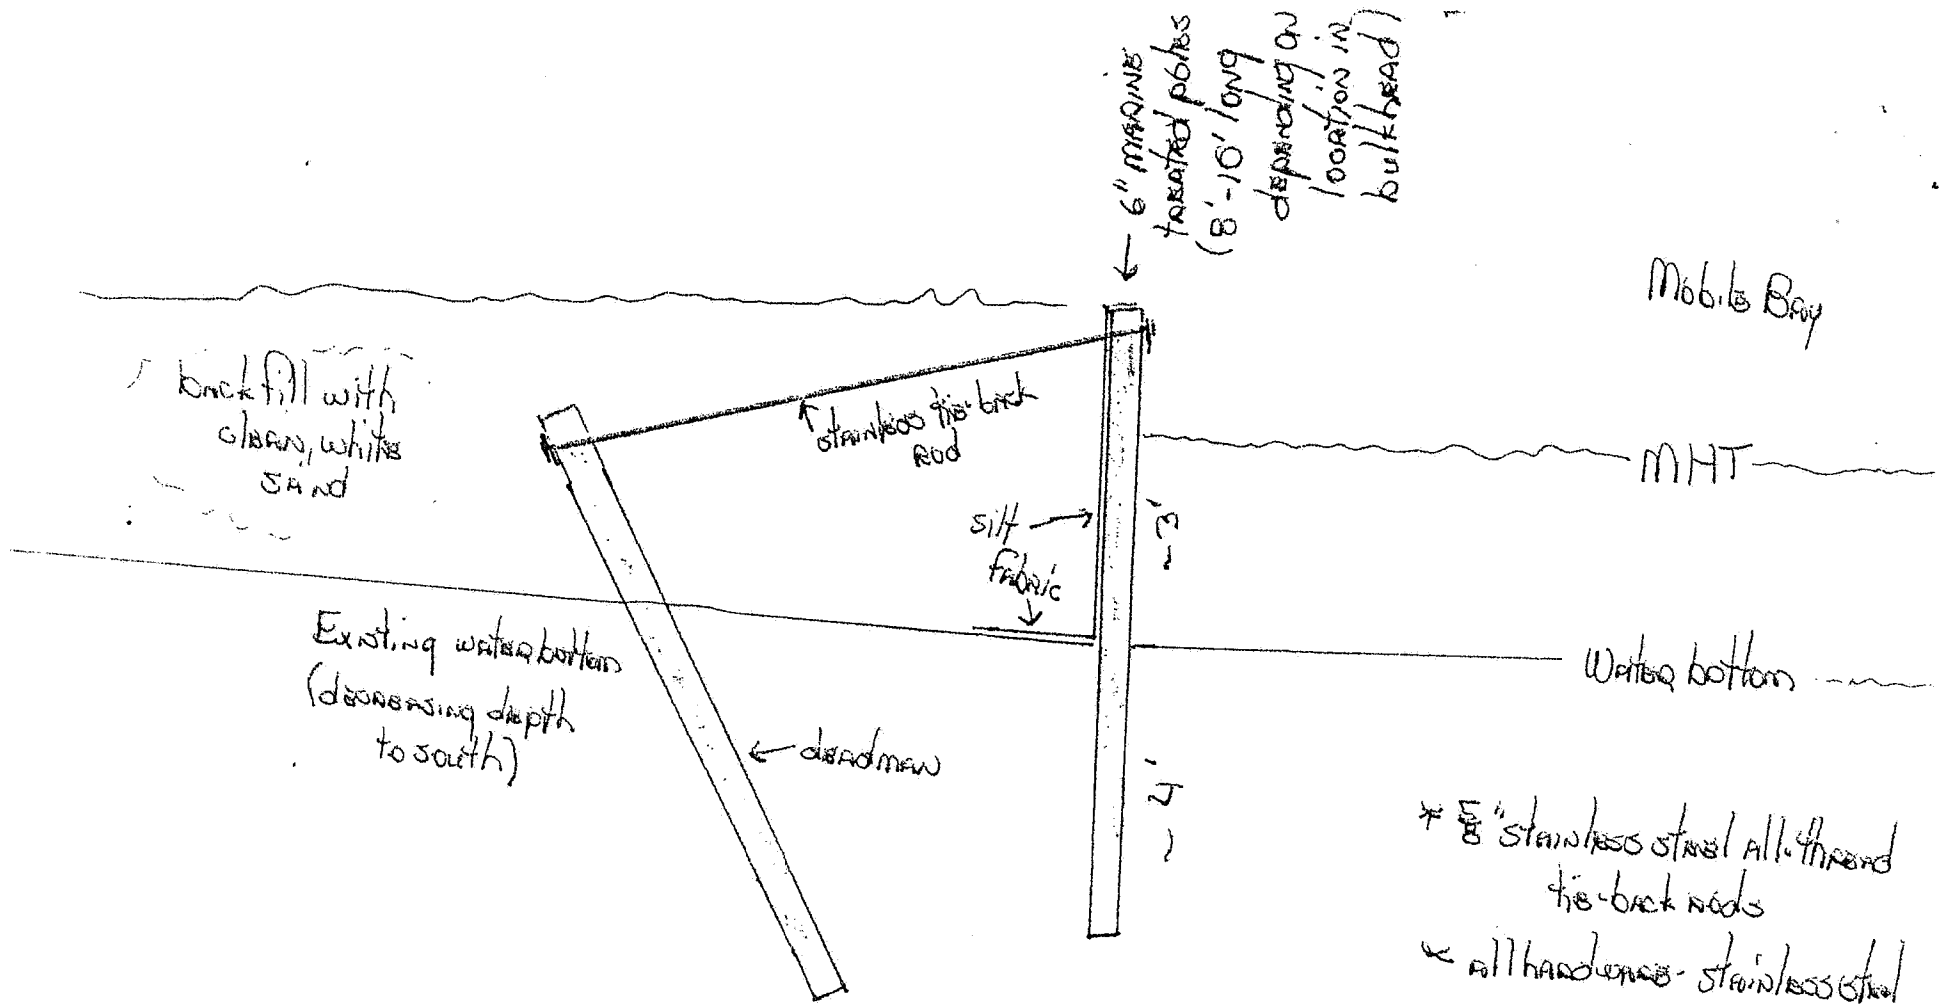 6" MARINE
treated poles
(8'-10' long
depending on
location in
bulkhead)
Mobile Bay
backfill with
clean, white
sand
stainless tie-back
rod
MHT
silt
fabric
~3'
Existing waterbottom
(decreasing depth
to south)
Water bottom
deadman
~4'
* 5/8" stainless steel all-thread
tie-back rods
* all hardware - stainless steel